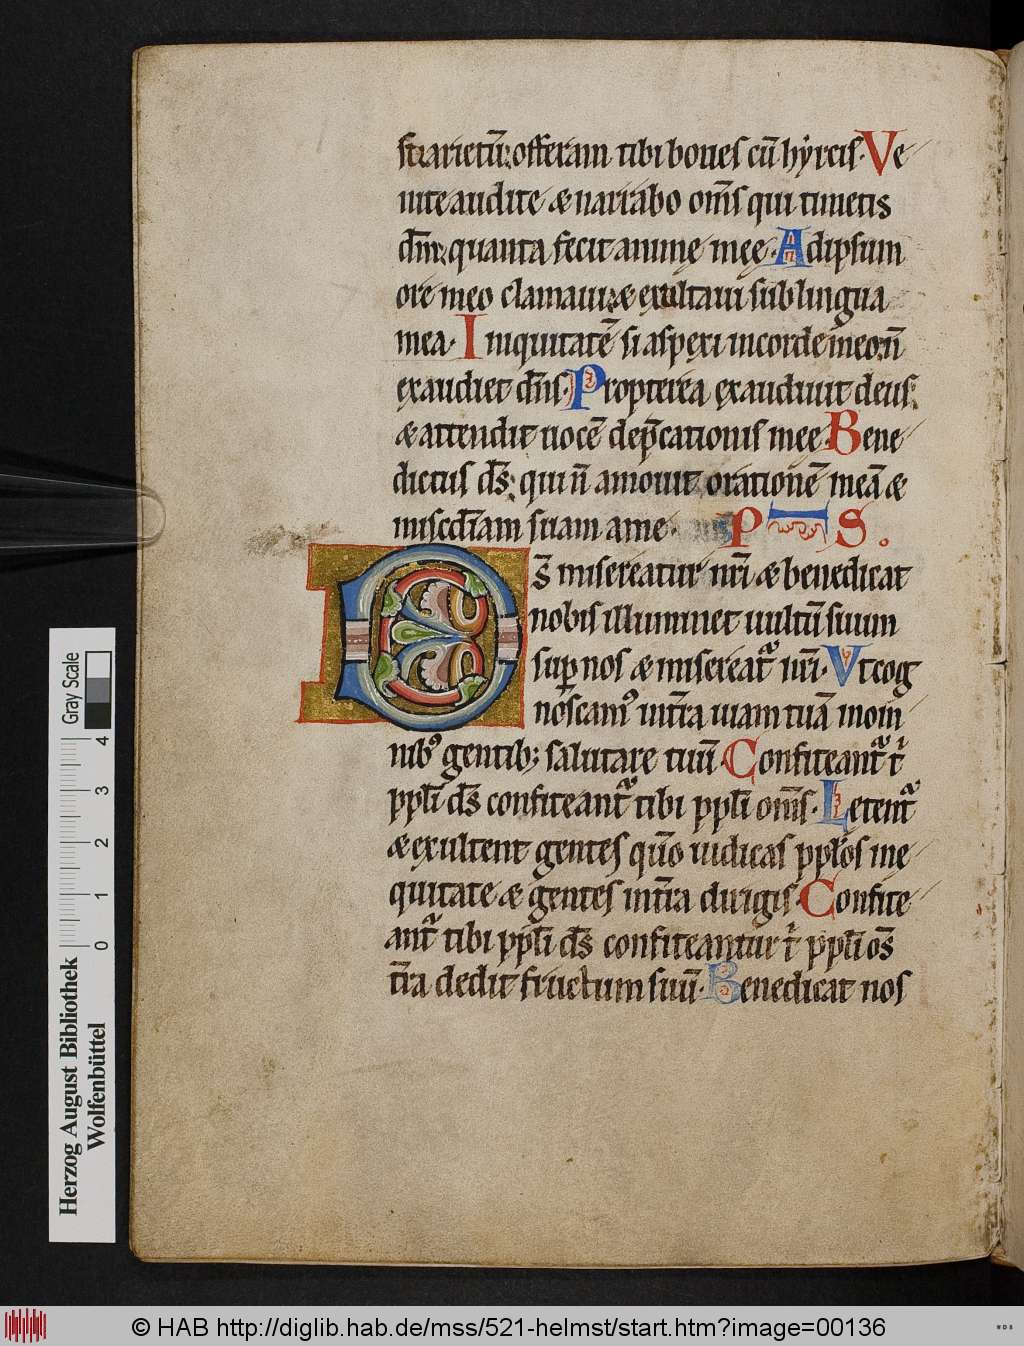 stu arietū: offeram tibi boues cū hẏrcis. Ve
nite audite & narrabo om̄s qui timetis
dm̄: quanta fecit anime meę. Ad ipsum
ore meo clamaui: & exultaui sub lingua
mea. Iniquitatē si aspexi in corde meo: n̄
exaudiet dn̄s. Propterea exaudiuit deus:
& attendit uocē dep̄cationis meę. Bene
dictus ds̄: qui n̄ amouit orationē meā &
misc̄diam suam a me. PS.
Ds̄ misereatur nr̄i & benedicat
nobis illuminet uultū suum
sup nos & misereat᷑ nr̄i. Vt cog
noscamꝰ in tr̄a uiam tuā in om
nibꝰ gentib; salutare tuū. Confiteant᷑ t̄
ppl̄i ds̄ confiteant᷑ tibi ppl̄i om̄s. Letent᷑
& exultent gentes qm̄o iudicas pplo̅s in e
quitate & gentes in tr̄a dirigis. Confite
ant᷑ tibi ppl̄i ds̄ confiteantur t̄ ppl̄i om̄s
tr̄a dedit fructum suū. Benedicat nos
Gray Scale
4 3 2 1 0
Herzog August Bibliothek
Wolfenbüttel
© HAB http://diglib.hab.de/mss/521-helmst/start.htm?image=00136